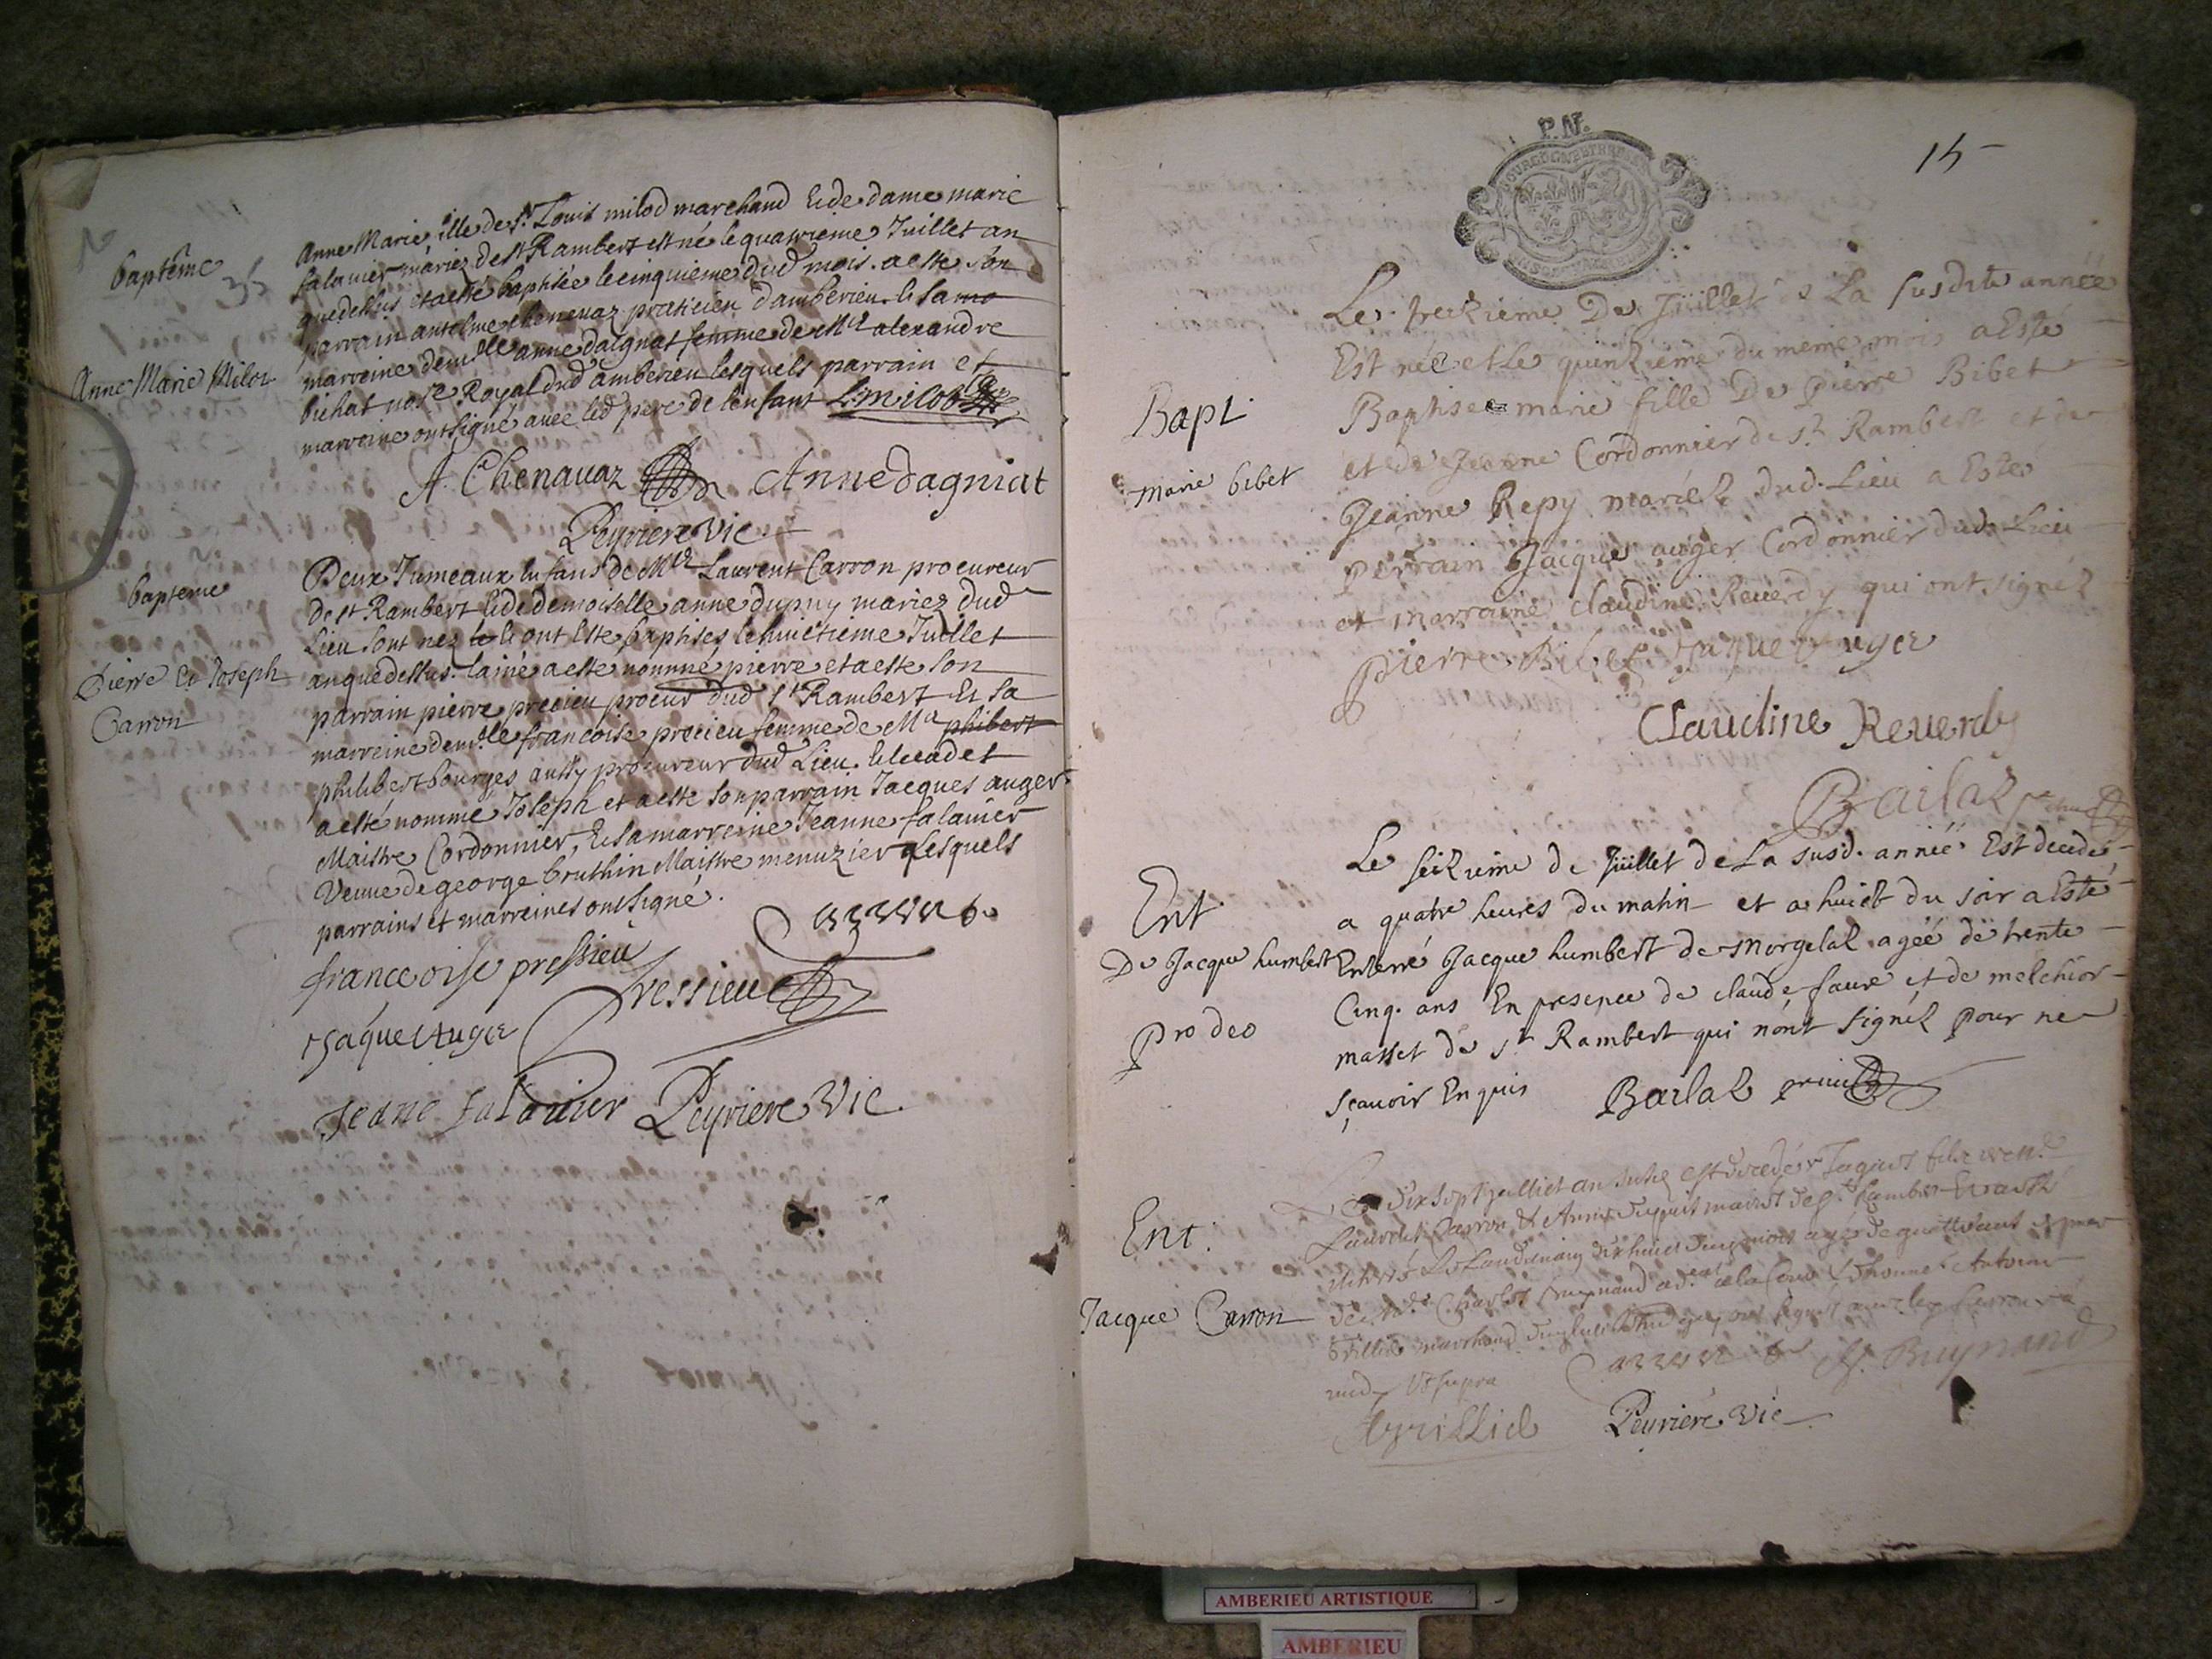 baptême
35
Anne Marie Milot
Anne Marie fille de sr. Louis milod marchand Et de dame marie
falavier mariez de st Rambert est né le quatrieme Juillet an
que dessus et a esté baptisée le cinquieme dud mois. a esté son
parrain antelme chenevaz praticien d'amberieu. Et sa ma
marreine demlle anne dagniat femme de Mre alexandre
bichat no.re Royal dud amberieu lesquels parrain et
marreine ont signé avec led pere de l'enfant L milod
A. Chenavaz Anne dagniat
Peyriere vic
bapteme
Pierre Et Joseph
Carron
Deux Jumeaux enfans de Mre Laurent Carron procureur
de st Rambert Et de demoiselle anne dupuy mariez dud
Lieu sont nez Et ont Esté baptises le huictieme Juillet
an que dessus. l'ainé a esté nommé pierre et a esté son
parrain pierre precieu procur dud st Rambert Et sa
marreine demlle francoise precieu femme de Mre phibert
philibert bourges aussy procureur dud Lieu. Et le cadet
a esté nommé Joseph et a esté son parrain Jacques auger
Maistre Cordonnier, Et sa marreine Jeanne falavier
Veuve de george bruthin Maistre menuzier Lesquels
parrains et marreines ont signé.
francoise pressieu
Pressieu
Jaque Auger
Jeane falavier Peyriere vic.
P.N.
15
Bapt.
marie bibet
Le treizieme De Juillet de La susdite année
Est née et Le quinzieme du meme mois a Esté
Baptisee marie fille De Pierre Bibet
et de Jeanne Cordonnier de st Rambert et de
Jeanne Repy mariéz dud. Lieu a Esté
perrain Jacque auger Cordonnier dud. Lieu
et marraine claudine Reverdy qui ont signéz
pierre Bibet Jaque Auger
Claudine Reverdy
Bailaz
Ent
De Jacque humbert
Pro deo
Le seizieme de Juillet de La susd. année Est decedé
a quatre heures du matin et a huict du soir a Esté
Enterré Jacque humbert de Morgelaz ageé de trente
Cinq. ans En presence de claude faure et de melchior
masset de st Rambert qui n'ont signéz pour ne
sçavoir Enquis Bailaz
Ent.
Jacque Carron
Le dix sept Juilliet an susd est decedé Jaques fils de Mre
Laurent Carron & Anne dupuit mariés de st Rambert Et a esté
enterré Le Landemain dix huict dud mois agé de quattre ans
de Mre Charles Buynand
brillied marchand
ut supra
Ch. Buynand
Abrillied Peyriere vic
AMBERIEU ARTISTIQUE
AMBERIEU